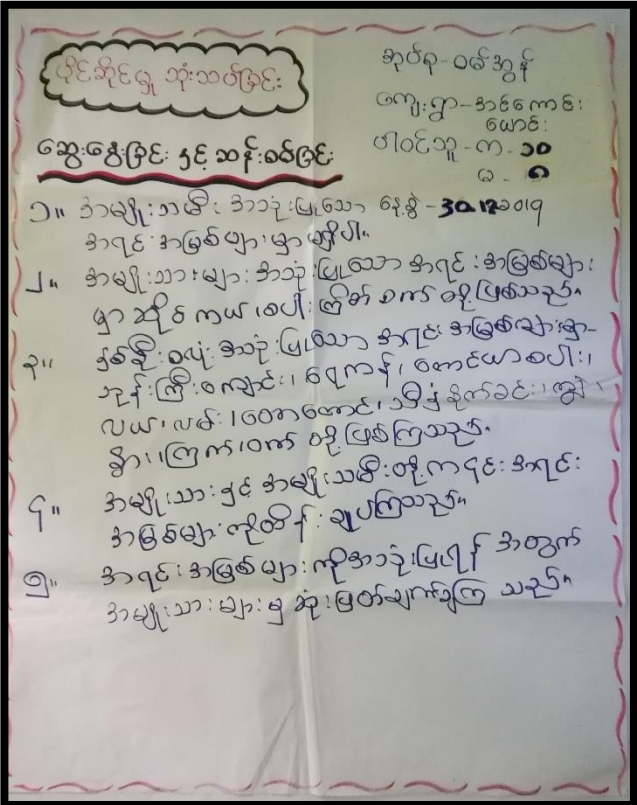 ပိုင်ဆိုင်မှု သုံးသပ်ခြင်း
အုပ်စု - ဝမ်အွန်
ကျေးရွာ - အင်ကောင်း
ယောင်း
ပါဝင်သူ - က - ၁၀
မ - ၈
ဆွေးနွေးခြင်း နှင့် ဆန်းစစ်ခြင်း
၁။ အမျိုးသမီး အသုံးပြုသော နေ့စွဲ - 30.12.2019
အရင်းအမြစ်များမှာ မရှိပါ။
၂။ အမျိုးသားများ အသုံးပြုသော အရင်းအမြစ်များ
မှာ ဆိုင်ကယ်၊ စပါးကြိတ်စက် တို့ဖြစ်သည်။
၃။ နှစ်ဦးစလုံး အသုံးပြုသော အရင်းအမြစ်များမှာ -
ဘုန်းကြီးကျောင်း၊ ရေကန်၊ တောင်ယာစပါး၊
လယ်၊ လမ်း၊ သစ်တော၊ သီးနှံစိုက်ခင်း၊ ကျွဲ၊
နွား၊ ကြက်၊ ဝက် တို့ဖြစ်ကြသည်။
၄။ အမျိုးသားနှင့် အမျိုးသမီးတို့က ၎င်းအရင်း
အမြစ်များကို ထိန်းချုပ်ကြသည်။
၅။ အရင်းအမြစ်များကို အသုံးပြုရန် အတွက်
အမျိုးသားများမှ ဆုံးဖြတ်ချက်ချကြ သည်။